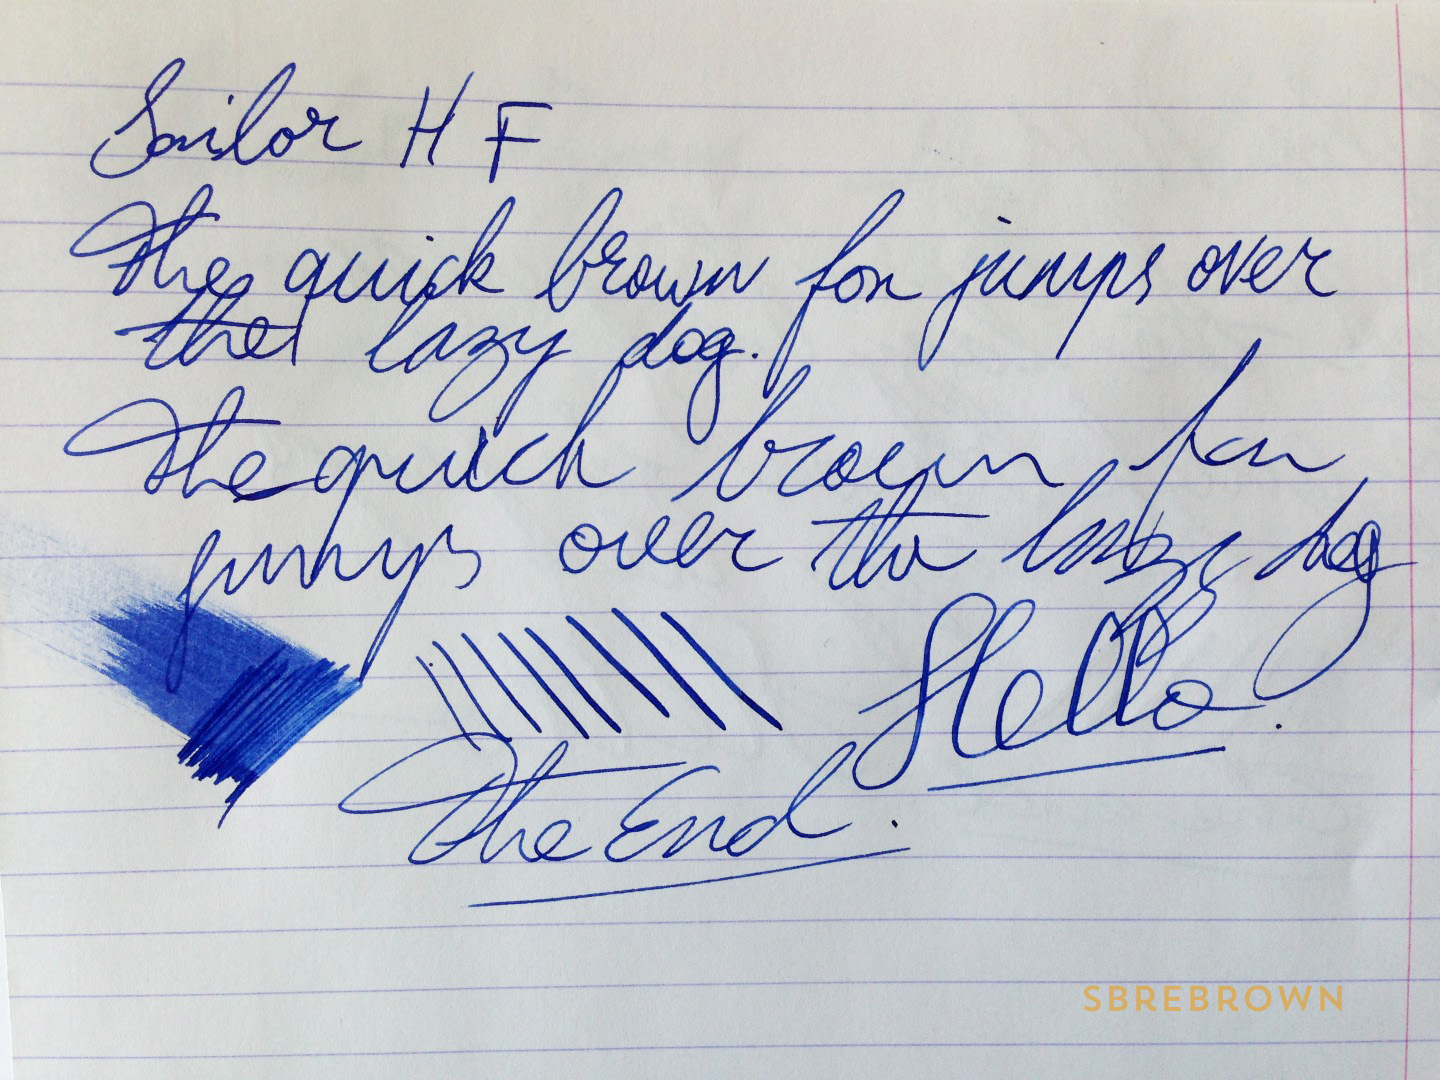 Sailor H F
The quick brown fox jumps over
the lazy dog.
The quick brown fox
jumps over the lazy dog
Hello.
The End.
SBREBROWN